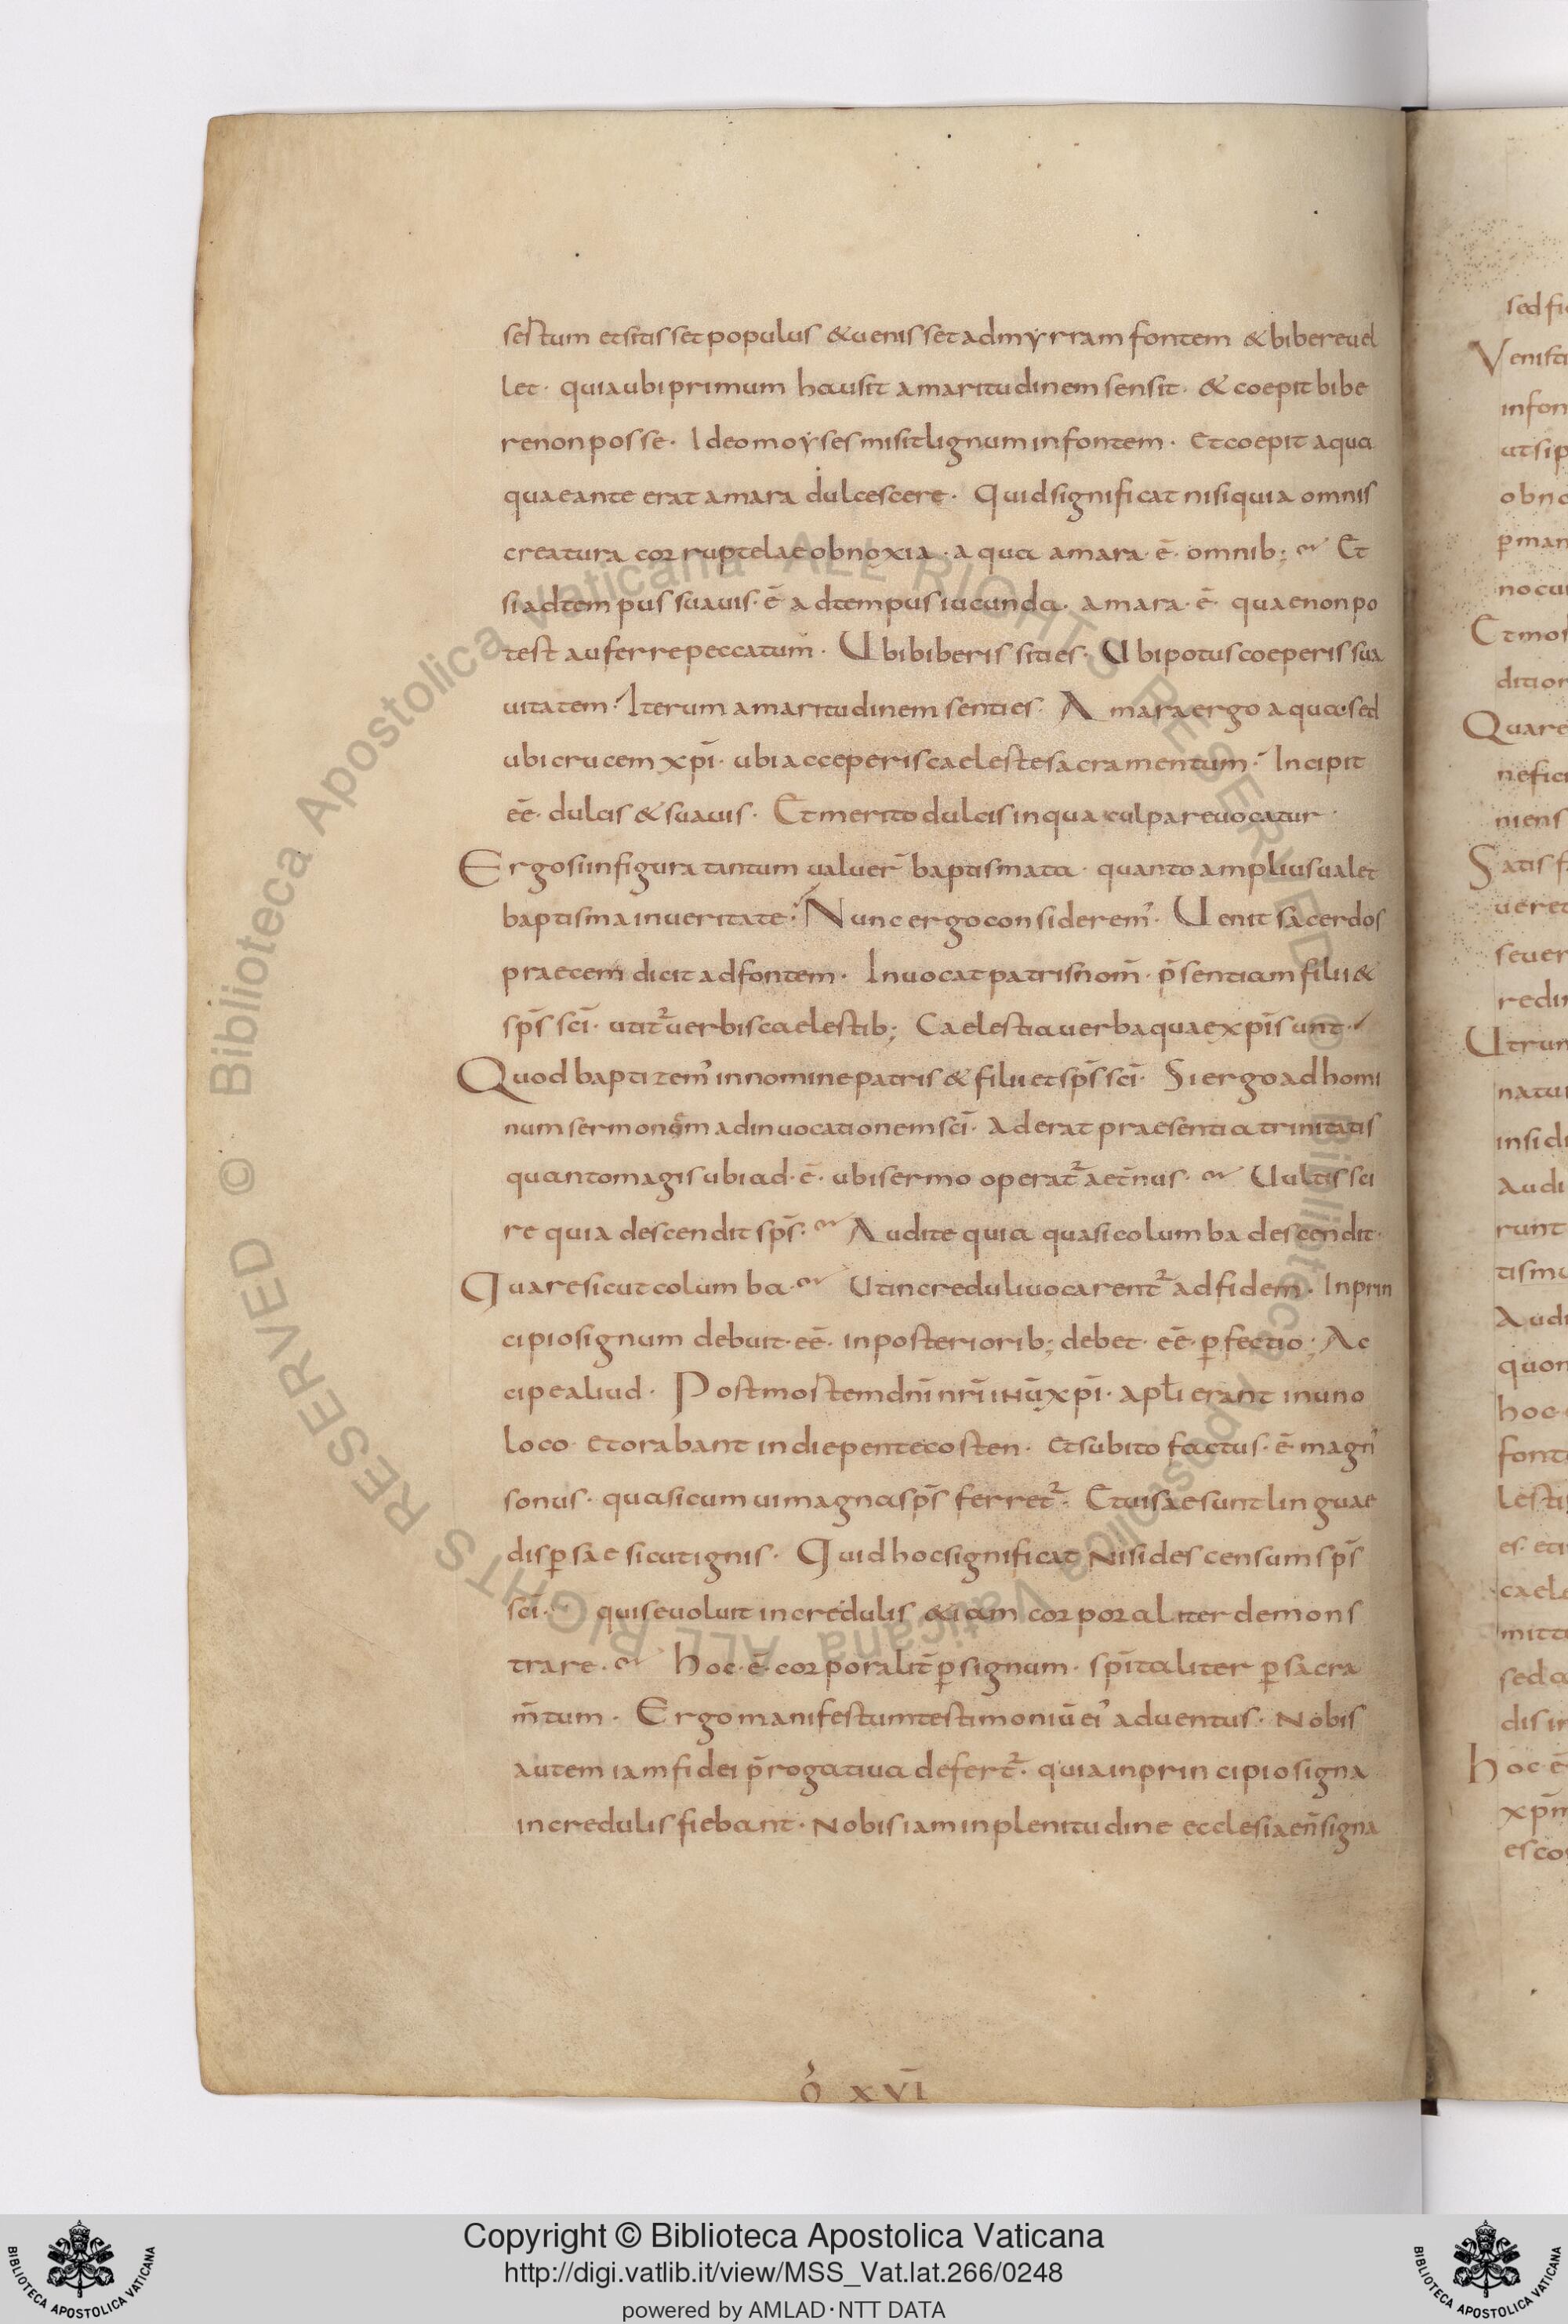 sertum etsitisset populus & uenisset ad myrram fontem & bibere uel
let · quia ubi primum hausit amaritudinem sensit · & coepit bibe
re non posse · Ideo moyses misit lignum in fontem · et coepit aqua
quae ante erat amara dulcescere · Quid significat nisi quia omnis
creatura corruptelae obnoxia · aqua amara · ē · omnib; Et
si ad tempus suauis · ē ad tempus iucunda · amara · ē · quae non po
test auferre peccatum · Ubi biberis sities · Ubi potus coeperis sua
uitatem · Iterum amaritudinem senties · Amara ergo aqua · sed
ubi crucem xpī · ubi acceperis caeleste sacramentum · Incipit
eē · dulcis & suauis · Et merito dulcis in qua culpa reuocatur ·
Ergo si in figura tantum ualuer̄ baptismata · quanto amplius ualet
baptisma in ueritate · Nunc ergo considerem' · Uenit sacerdos
praecem dicit ad fontem · Inuocat patris nom̄ · p̄sentiam filii &
sp̄s sc̄i · utit² uerbis caelestib; Caelestia uerba quae xpī sunt ·
Quod baptizem' in nomine patris & filii et sp̄s sc̄i · Si ergo ad homi
num sermonem ad inuocationem sc̄i · aderat praesentia trinitatis
quanto magis ubi ad · ē · ubi sermo operat² aet̄nus · Uultis sci
re quia descendit sp̄s · Audite quia quasi columba descendit ·
Quare sicut columba · Ut increduli uocarent² ad fidem · In prin
cipio signum debuit · eē · in posteriorib; debet · eē · p̱fectio ; Ac
cipe aliud · Post mortem dn̄i nr̄i ihū xpī · apl̄i erant in uno
loco · et orabant in die pentecosten · et subito factus · ē magn'
sonus · quasi cum ui magna sp̄s ferret² · Et uisae sunt linguae
disp̱sae sicut ignis · Quid hoc significat nisi descensum sp̄s
sc̄i · qui se uoluit incredulis & iam corporaliter demons
trare · hoc · ē · corporalit̄ p̱ signum · sp̄italiter p̱ sacra
m̄tum · Ergo manifestum testimoniū ei' aduentus · Nobis
autem iam fidei p̄rogatiua defert² · quia in principio signa
incredulis fiebant · Nobis iam in plenitudine ecclesiae n̄ signa
XVI
sed fi
Venisti
in fon
ut si p
obno
p̱man
no cui
Et mos
ditior
Quare
nefici
niens
Satis f
ueret
seuer
redin
Utrum
natu
in si di
Audi
runt
tismu
Audi
quon
hoc
fonte
lesti
es · eti
caele
mitt
sed a
dis in
hoc · ē
xpm̄
es co
Biblioteca Apostolica Vaticana ALL RIGHTS RESERVED © Biblioteca Apostolica Vaticana ALL RIGHTS RESERVED ©
Copyright © Biblioteca Apostolica Vaticana
http://digi.vatlib.it/view/MSS_Vat.lat.266/0248
powered by AMLAD·NTT DATA
BIBLIOTECA APOSTOLICA VATICANA
BIBLIOTECA APOSTOLICA VATICANA